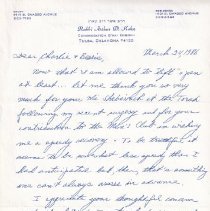 Rabbi Arthur D. Kahn
Congregation B'nai Emunah
Tulsa, Oklahoma 74120
March 24, 1980
Dear Charlie & Bessie,
Now that I am allowed to lift a pen
at last... let me thank you so very
much for your Mi Shebeirach at the Torah
following my recent surgery and for your
contribution to the Men's Club in wishing
me a speedy recovery. To be truthful it
seems to be somewhat less speedy than I
had anticipated but then, that is something
one can't always know in advance.
I appreciate your thoughtful concern